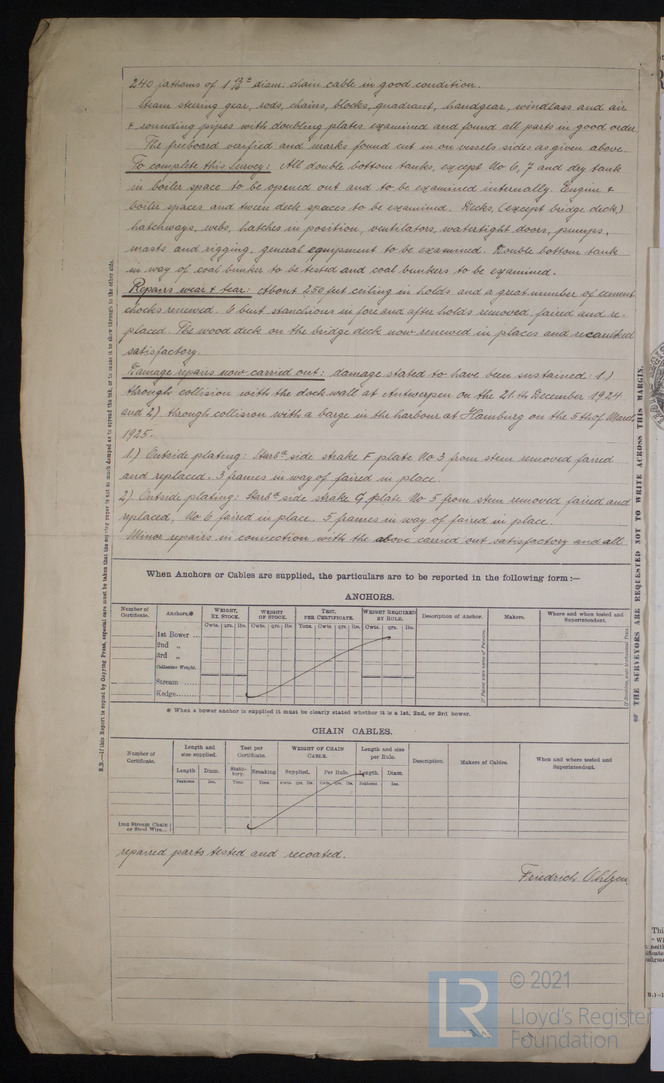 240 fathoms of 1 diam. chain cable in good condition.
Steam steering gear, rods, chains, blocks, quadrant, handgear, windlass and air
+ sounding pipes with doubling plates examined and found all parts in good order
The freeboard verified and marks found cut in on vessels sides as given above.
To complete this survey: All double bottom tanks, except No 6, 7 and dry tank
in boiler space to be opened out and to be examined internally. Engine +
boiler spaces and tween deck spaces to be examined. Decks, (except bridge deck)
hatchways, webs, hatches in position, ventilators, watertight doors, pumps,
masts and rigging, general equipment to be examined. Double bottom tank
in way of coal bunker to be tested and coal bunkers to be examined.
Repairs wear + tear: About 250 feet ceiling in holds and a great number of cement
chocks renewed. 6 bent stanchions in fore and after holds removed faired and re-
placed. The wood deck on the bridge deck now renewed in places and recaulked
satisfactory.
Damage repairs now carried out: damage stated to have been sustained 1.)
through collision with the dock wall at Antwerpen on the December 1924
and 2) through collision with a barge in the harbour at Hamburg on the 5th of March
1925.
1.) Outside plating: Starbd side strake F plate No 3 from stem removed faired
and replaced. 3 frames in way of faired in place.
2) Outside plating: Starbd side strake G plate No 5 from stem removed faired and
replaced, No 6 faired in place. 5 frames in way of faired in place.
Minor repairs in connection with the above carried out satisfactory and all
When Anchors or Cables are supplied, the particulars are to be reported in the following form:—
ANCHORS.
Number of Certificate. Anchors.* WEIGHT, EX STOCK. WEIGHT OF STOCK. TEST, PER CERTIFICATE. WEIGHT REQUIRED BY RULE. Description of Anchor. Makers. Where and when tested and Superintendent.
Cwts. qrs. lbs. Cwts. qrs. lbs. Tons. Cwts. qrs. lbs. Cwts. qrs. lbs.
1st Bower ...
2nd „
3rd „
Collective Weight.
Stream ......
Kedge........
* When a bower anchor is supplied it must be clearly stated whether it is a 1st, 2nd, or 3rd bower.
CHAIN CABLES.
Number of Certificate. Length and size supplied. Test per Certificate. WEIGHT OF CHAIN CABLE. Length and size per Rule. Description. Makers of Cables. When and where tested and Superintendent.
Length Diam. Statutory. Breaking Supplied. Per Rule. Length. Diam.
Fathoms Ins. Tons Tons Cwts. qrs. lbs. Cwts. qrs. lbs. Fathoms Ins.
Iron Stream Chain or Steel Wire...
repaired parts tested and recoated.
Friedrich
THE SURVEYORS ARE REQUESTED NOT TO WRITE ACROSS THIS MARGIN.
LR
© 2021
Lloyd's Register
Foundation